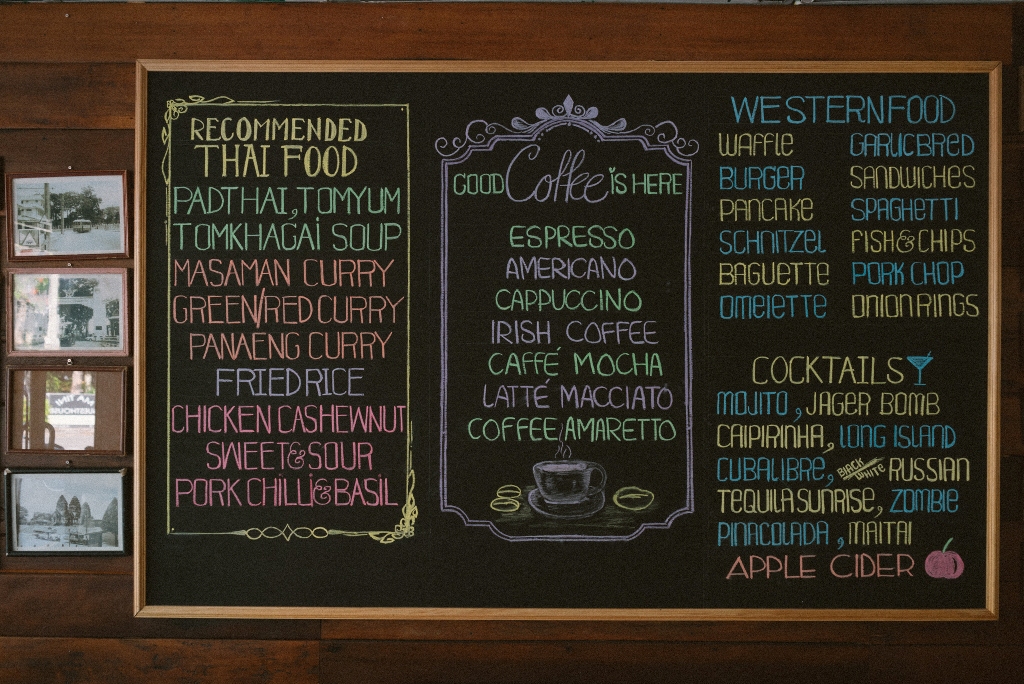 RECOMMENDED
THAI FOOD
PADTHAI, TOMYUM
TOMKHAGAI SOUP
MASAMAN CURRY
GREEN/RED CURRY
PANAENG CURRY
FRIED RICE
CHICKEN CASHEWNUT
SWEET & SOUR
PORK CHILLI & BASIL
GOOD Coffee is HERE
ESPRESSO
AMERICANO
CAPPUCCINO
IRISH COFFEE
CAFFÉ MOCHA
LATTÉ MACCIATO
COFFEE AMARETTO
WESTERN FOOD
WAFFLE GARLIC BRED
BURGER SANDWICHES
PANCAKE SPAGHETTI
SCHNITZEL FISH & CHIPS
BAGUETTE PORK CHOP
OMElETTE ONION RINGS
COCKTAILS
MOJITO, JAGER BOMB
CAIPIRINHA, LONG ISLAND
CUBALIBRE, BLACK/WHITE RUSSIAN
TEQUILA SUNRISE, ZOMBIE
PINACOLADA, MAITAI
APPLE CIDER